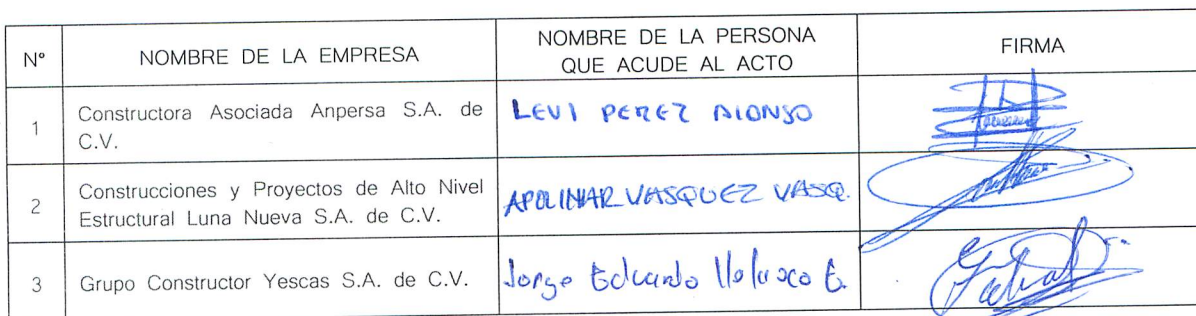 Nº NOMBRE DE LA EMPRESA NOMBRE DE LA PERSONA QUE ACUDE AL ACTO FIRMA
1 Constructora Asociada Anpersa S.A. de C.V. LEVI PEREZ ALONSO
2 Construcciones y Proyectos de Alto Nivel Estructural Luna Nueva S.A. de C.V. APOLINAR VASQUEZ VASQ.
3 Grupo Constructor Yescas S.A. de C.V. Jorge Eduardo Velasco E.